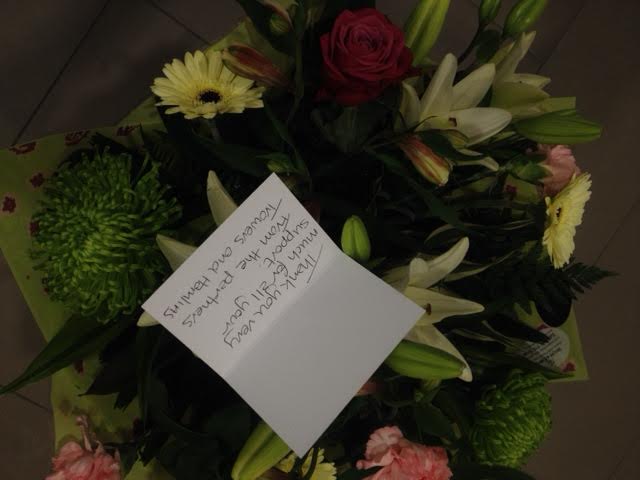 Thank you very
much for all your
support
from the partners
Trowers and Hamlins